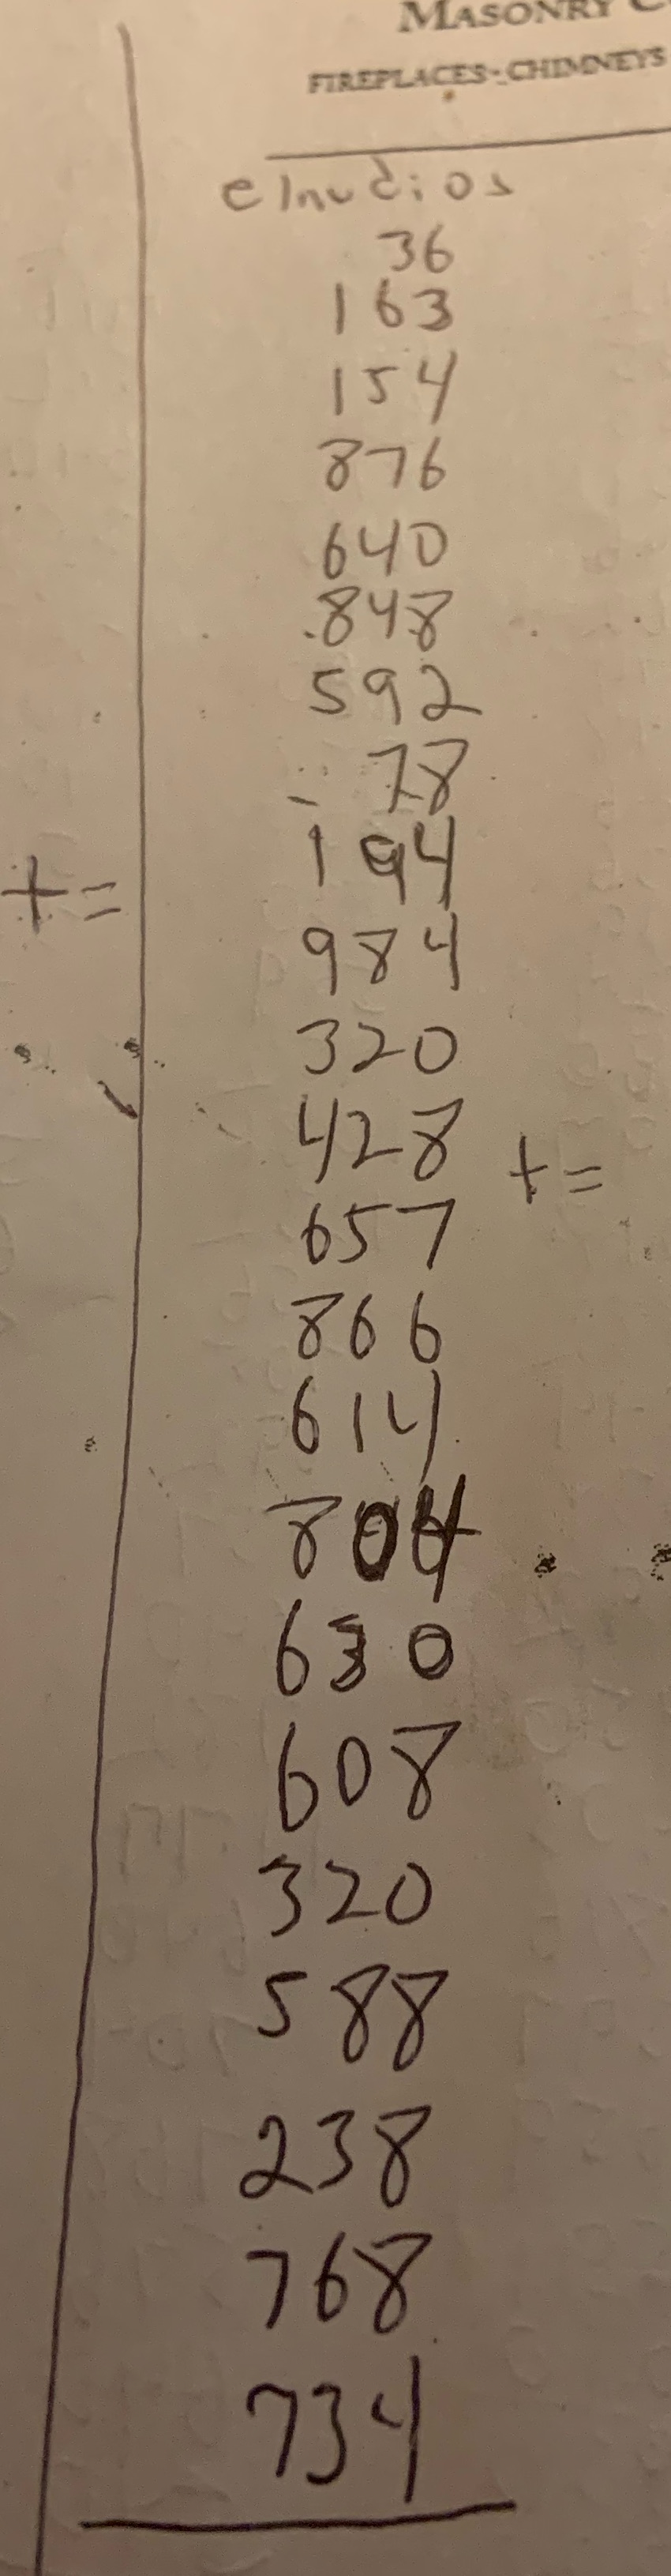 MASONRY C
FIREPLACES-CHIMNEYS
36
163
154
876
640
848
592
78
194
+=
984
320
428
+=
657
866
614
804
630
608
320
588
238
768
734